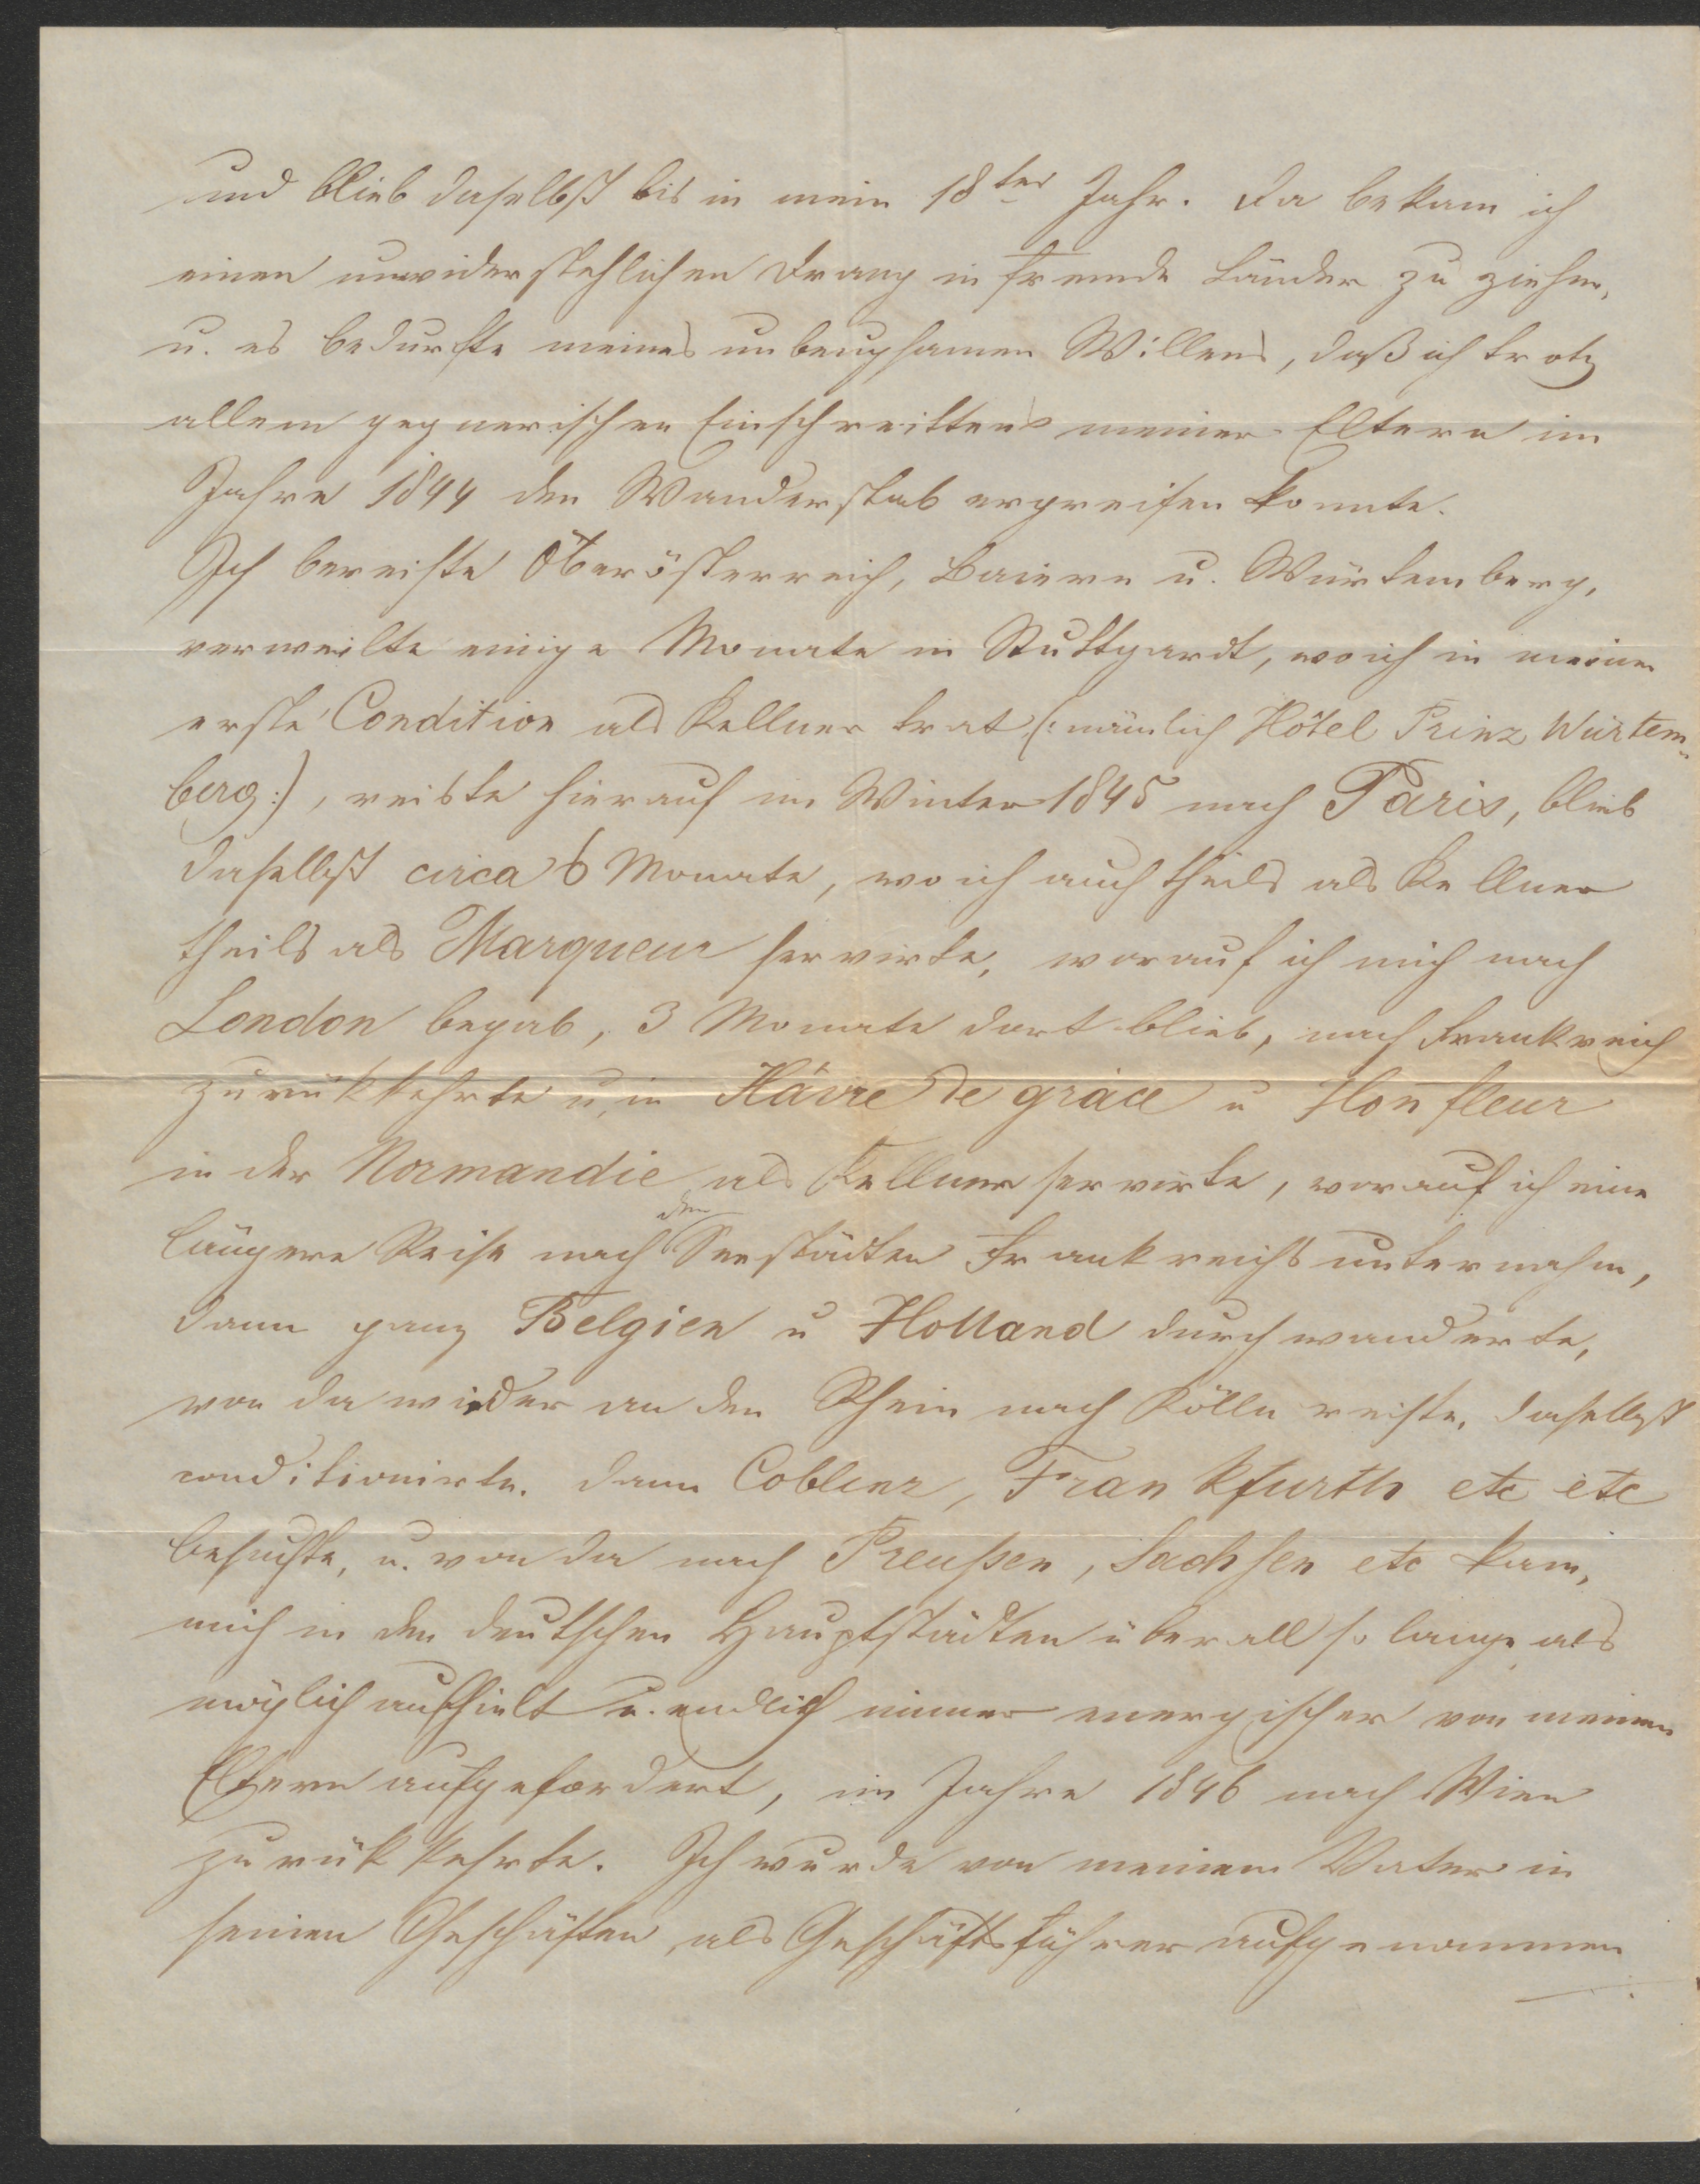 und blieb daselbst bis in mein 18tes Jahr. Da bekam ich
einen unwiderstehlichen Drang in fremde Länder zu ziehen,
u. es bedurfte meines unbeugsamen Willens, daß ich trotz
allem gegnerischen Einschreittens meiner Eltern im
Jahre 1844 den Wanderstab ergreifen konnte.
Ich bereiste Oberösterreich, Baiern u. Würtemberg,
verweilte einige Monate in Stuttgardt, wo ich in meine
erste Condition als Kellner trat (: nämlich Hôtel Prinz Würtem-
berg :), reiste hierauf im Winter 1845 nach Paris, blieb
daselbst circa 6 Monate, wo ich auch theils als Kellner
theils als Marqueur servirte, worauf ich mich nach
London begab, 3 Monate dort blieb, nach Frankreich
zurükkehrte u. in Hâvre de grâce u Honfleur
in der Normandie als Kellner servirte, worauf ich eine
längere Reise nach den Seestädten Frankreichs unternahm,
dann ganz Belgien u Holland durchwanderte,
von da wieder an den Rhein nach Kölln reiste, daselbst
conditionirte, dann Coblenz, Frankfurth etc etc
besuchte, u. von da nach Preußen, Sachsen etc kam,
mich in den deutschen Hauptstädten überall so lange als
möglich aufhielt u. endlich immer energischer von meinen
Eltern aufgefordert, im Jahre 1846 nach Wien
zurükkehrte. Ich wurde von meinem Vater in
seinen Geschäften als Geschäftsführer aufgenommen